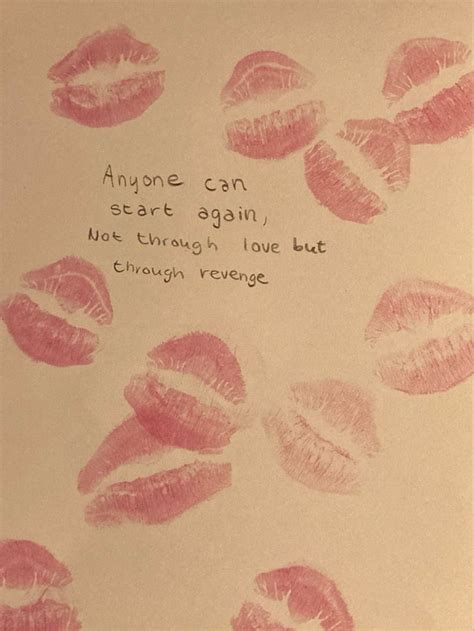 Anyone can
start again,
Not through love but
through revenge